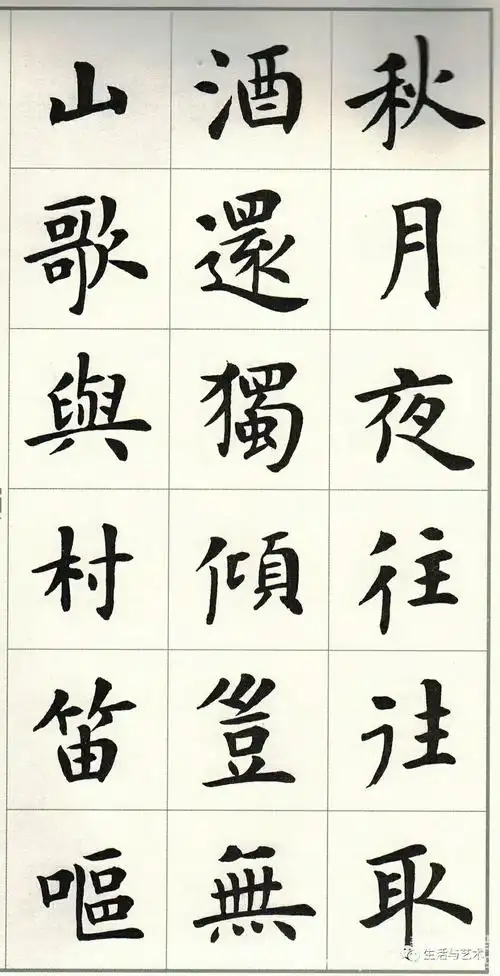 秋月夜往往取
酒還獨傾豈無
山歌與村笛嘔
生活与艺术